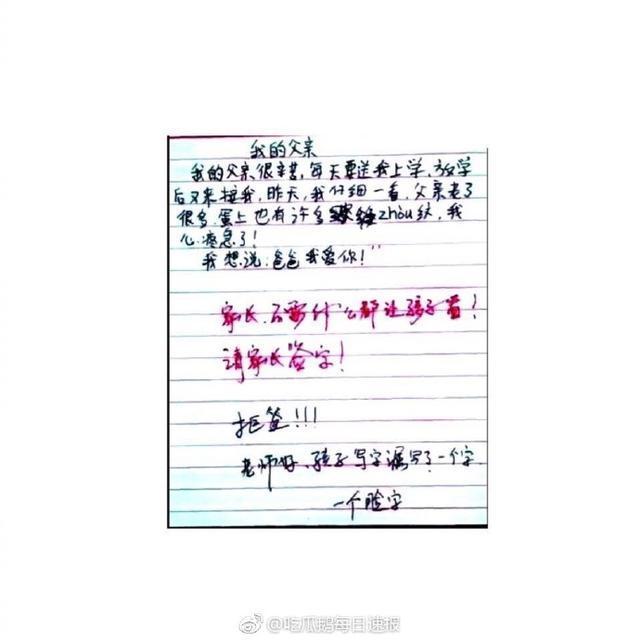 我的父亲
我的父亲很辛苦，每天要送我上学，放学
后又来接我，昨天，我仔细一看，父亲老了
很多.蛋上也有许多zhòu纹，我
心疼急了！
我想说：爸爸我爱你！"
家长.不要什么都让孩子看！
请家长签字！
拒签！！！
老师好，孩子写字漏写了一个字
一个脸字
@吃瓜鹅每日速报